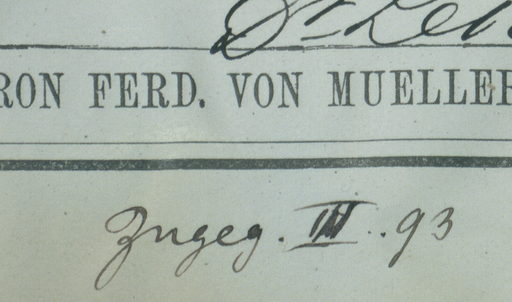 RON FERD. VON MUELLER
Zugeg. III. 93